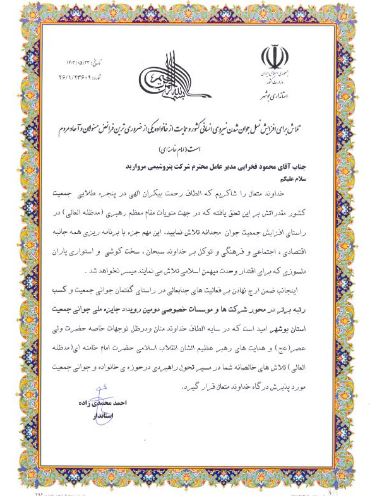 تاریخ: ۱۴۰۳/۰۵/۲۳
شماره: ۲۶/۱/۲۳۶۰۹
جمهوری اسلامی ایران
وزارت کشور
استانداری بوشهر
تلاش برای افزایش نسل جوان شدن نیروی انسانی کشور و حمایت از خانواده یکی از ضروری ترین فرائض مسئولان و آحاد مردم
است (امام خامنه ای)
جناب آقای محمود فخرایی مدیر عامل محترم شرکت پتروشیمی مروارید
سلام علیکم
خداوند متعال را شاکریم که الطاف رحمت بیکران الهی در پنجره طلایی جمعیت
کشور مقدراتش بر این تعلق یافته که در جهت منویات مقام معظم رهبری (مدظله العالی) در
راستای افزایش جمعیت جوان مجدانه تلاش نمایید. این مهم جزء با برنامه ریزی همه جانبه
اقتصادی ، اجتماعی و فرهنگی و توکل بر خداوند سبحان ، سخت کوشی و استواری یاران
دلسوزی که برای اقتدار وحدت میهمن اسلامی تلاش می نمایند میسر نخواهد شد .
اینجانب ضمن ارج نهادن بر فعالیت های جنابعالی در راستای گفتمان جوانی جمعیت و کسب
رتبه برتر در محور شرکت ها و موسسات خصوصی دومین رویداد جایزه ملی جوانی جمعیت
استان بوشهر امید است که در سایه الطاف خداوند منان و درظل توجهات خاصه حضرت ولی
عصر(عج) و هدایت های رهبر عظیم الشان انقلاب اسلامی حضرت امام خامنه ای(مدظله
العالی) تلاش های خالصانه شما در مسیر تحول راهبردی درحوزه ی خانواده و جوانی جمعیت
مورد پذیرش درگاه خداوند متعال قرار گیرد.
احمد محمدی زاده
استاندار